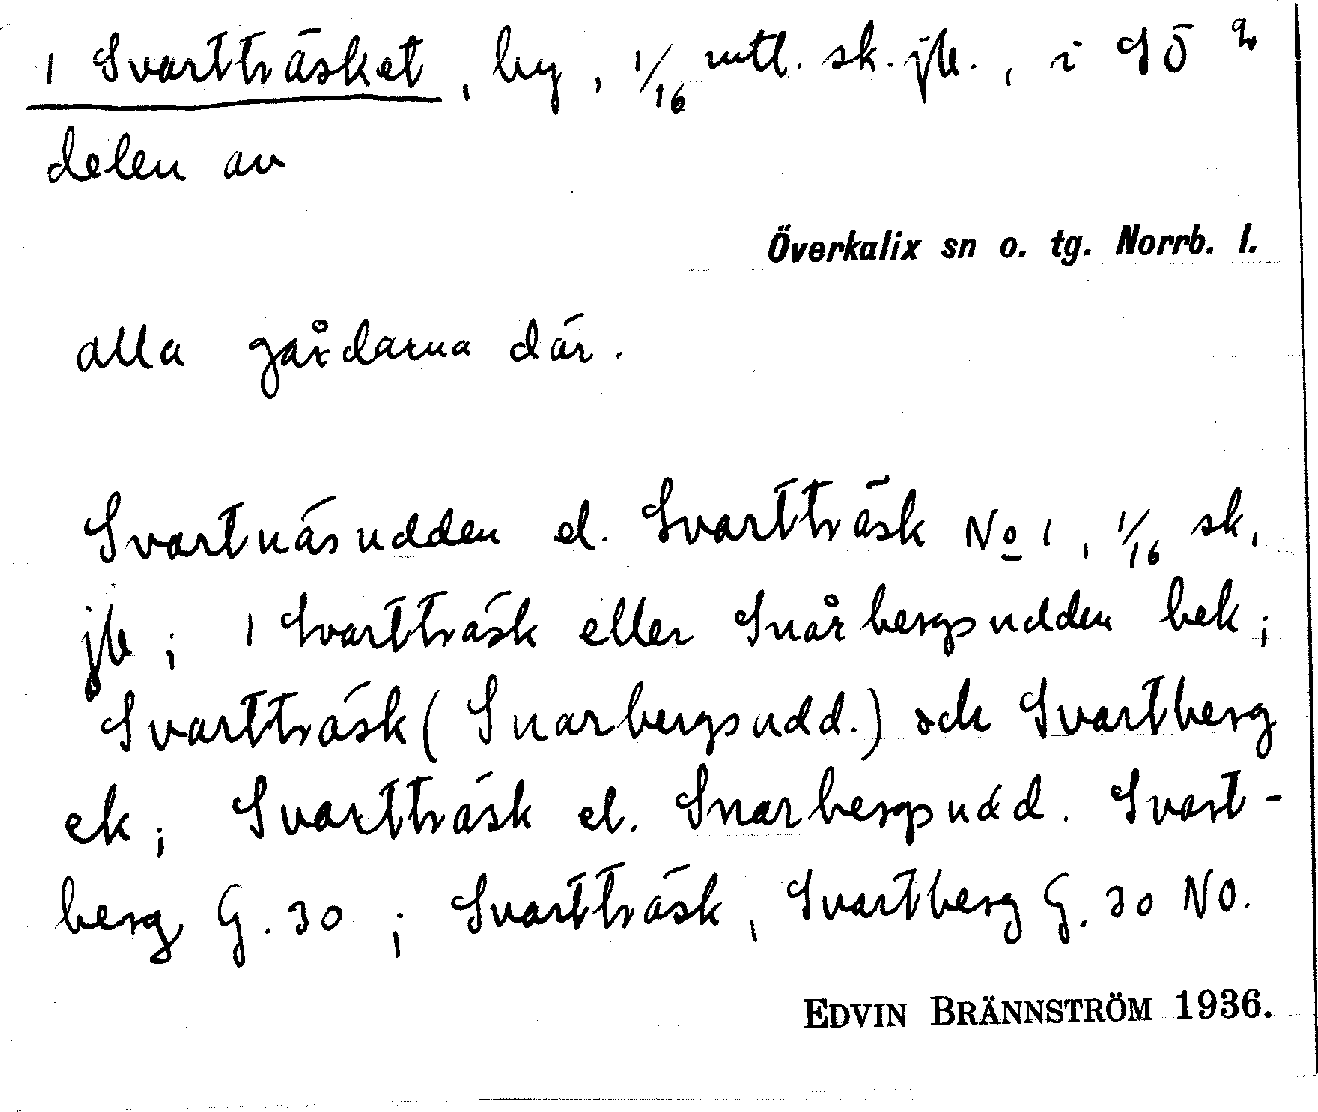 1 Svartträsket, by, 1/16 mtl. sk. jb., i SÖ
delen av
Överkalix sn o. tg. Norrb. l.
alla gårdarna där.
Svartnäsudden el. Svartträsk No 1, 1/16 sk.
jb; 1 Svartträsk eller Snårbergsudden bek;
Svartträsk (Snarbergsudd.) och Svartberg
ek; Svartträsk el. Snarbergsudd. Svart-
berg G. 30; Svartträsk, Svartberg G. 30 NO.
EDVIN BRÄNNSTRÖM 1936.